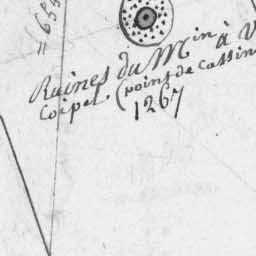 Ruines du Mⁱⁿ à V
Coipel. (point de Cassin
1267